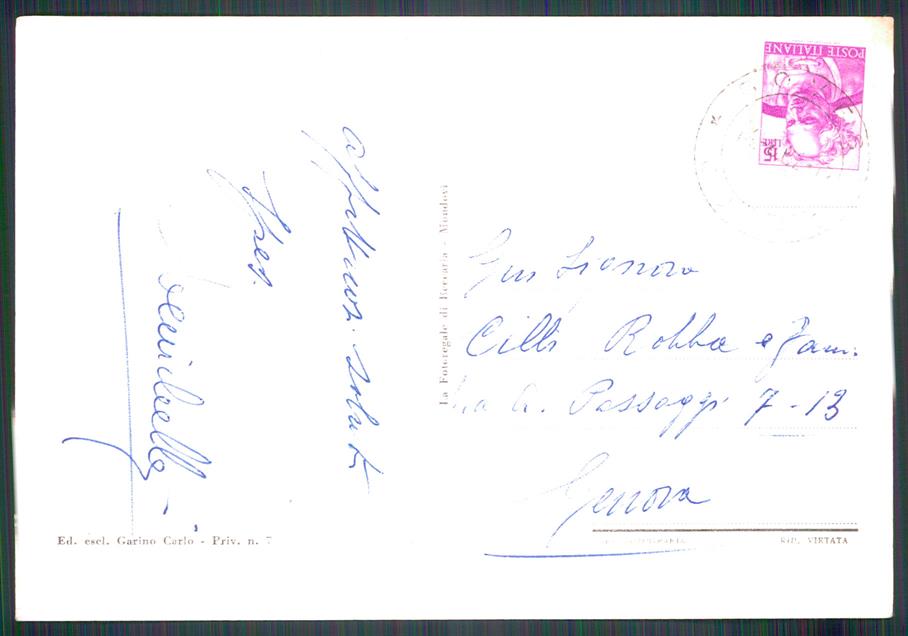 POSTE ITALIANE
LIRE 15
affettuosi saluti
La Fotoregale di Beccaria - Mondovì
Signora
Cilli Robba e Fam.
Via A. Passaggi 7-13
Genova
Ed. escl. Garino Carlo - Priv. n. 7
RIP. VIETATA